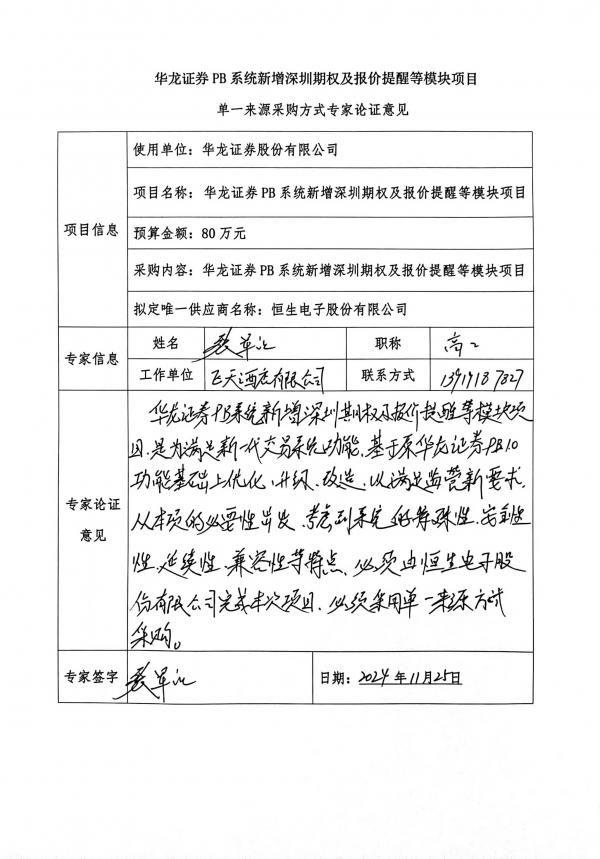 华龙证券 PB 系统新增深圳期权及报价提醒等模块项目
单一来源采购方式专家论证意见
项目信息
使用单位：华龙证券股份有限公司
项目名称：华龙证券 PB 系统新增深圳期权及报价提醒等模块项目
预算金额：80 万元
采购内容：华龙证券 PB 系统新增深圳期权及报价提醒等模块项目
拟定唯一供应商名称：恒生电子股份有限公司
专家信息
姓名 军 职称 高工
工作单位 飞天酒店有限公司 联系方式
专家论证
意见
华龙证券PB系统新增深圳期权及报价提醒等模块项
目，是为满足新一代交易系统功能，基于原华龙证券PB
功能基础上优化、升级、改造，以满足监管新要求，
从本项的必要性出发，考虑到系统的特殊性、安全
性、延续性、兼容性等特点，必须由恒生电子股
份有限公司完成本次项目，必须采用单一来源方式
采购。
专家签字 军
日期：2024年11月25日